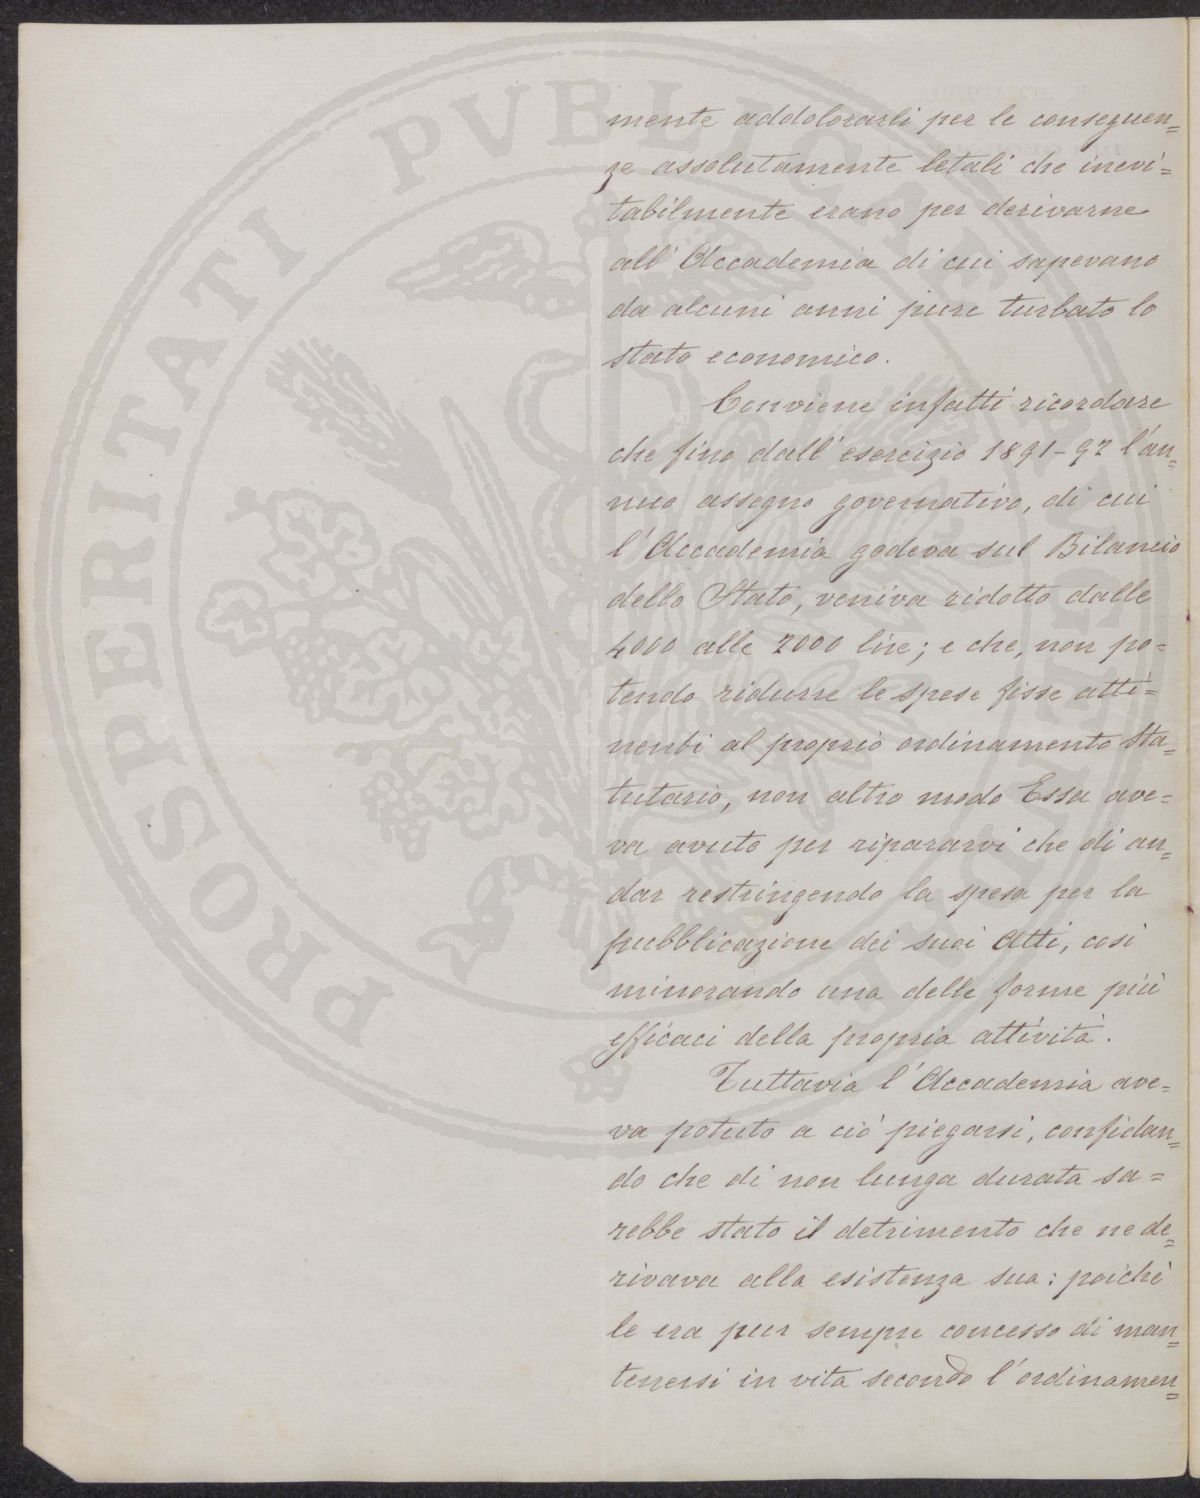 PROSPERITATI PVBLICAE AVGENDAE
mente addolorarli per le conseguen=
ze assolutamente letali che inevi=
tabilmente erano per derivarne
all'Accademia di cui sapevano
da alcuni anni pure turbato lo
stato economico.
Conviene infatti ricordare
che fino dall'esercizio 1891-92 l'an=
nuo assegno governativo, di cui
l'Accademia godeva sul Bilancio
dello Stato, veniva ridotto dalle
4000 alle 2000 lire; e che, non po=
tendo ridurre le spese fisse atti=
nenti al proprio ordinamento sta=
tutario, non altro modo Essa ave=
va avuto per ripararvi che di an=
dar restringendo la spesa per la
pubblicazione dei suoi Atti, così
minorando una delle forme più
efficaci della propria attività.
Tuttavia l'Accademia ave=
va potuto a ciò piegarsi, confidan=
do che di non lunga durata sa=
rebbe stato il detrimento che ne de=
rivava alla esistenza sua: poichè
le era pur sempre concesso di man=
tenersi in vita secondo l'ordinamen=